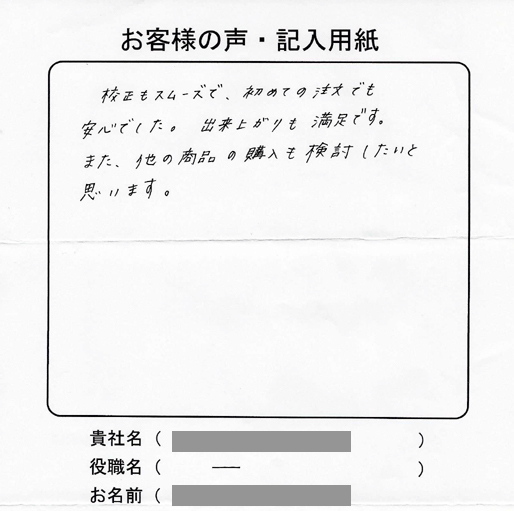 お客様の声・記入用紙
校正もスムーズで、初めての注文でも
安心でした。出来上がりも満足です。
また、他の商品の購入も検討したいと
思います。
貴社名（　　　）
役職名（　―　）
お名前（